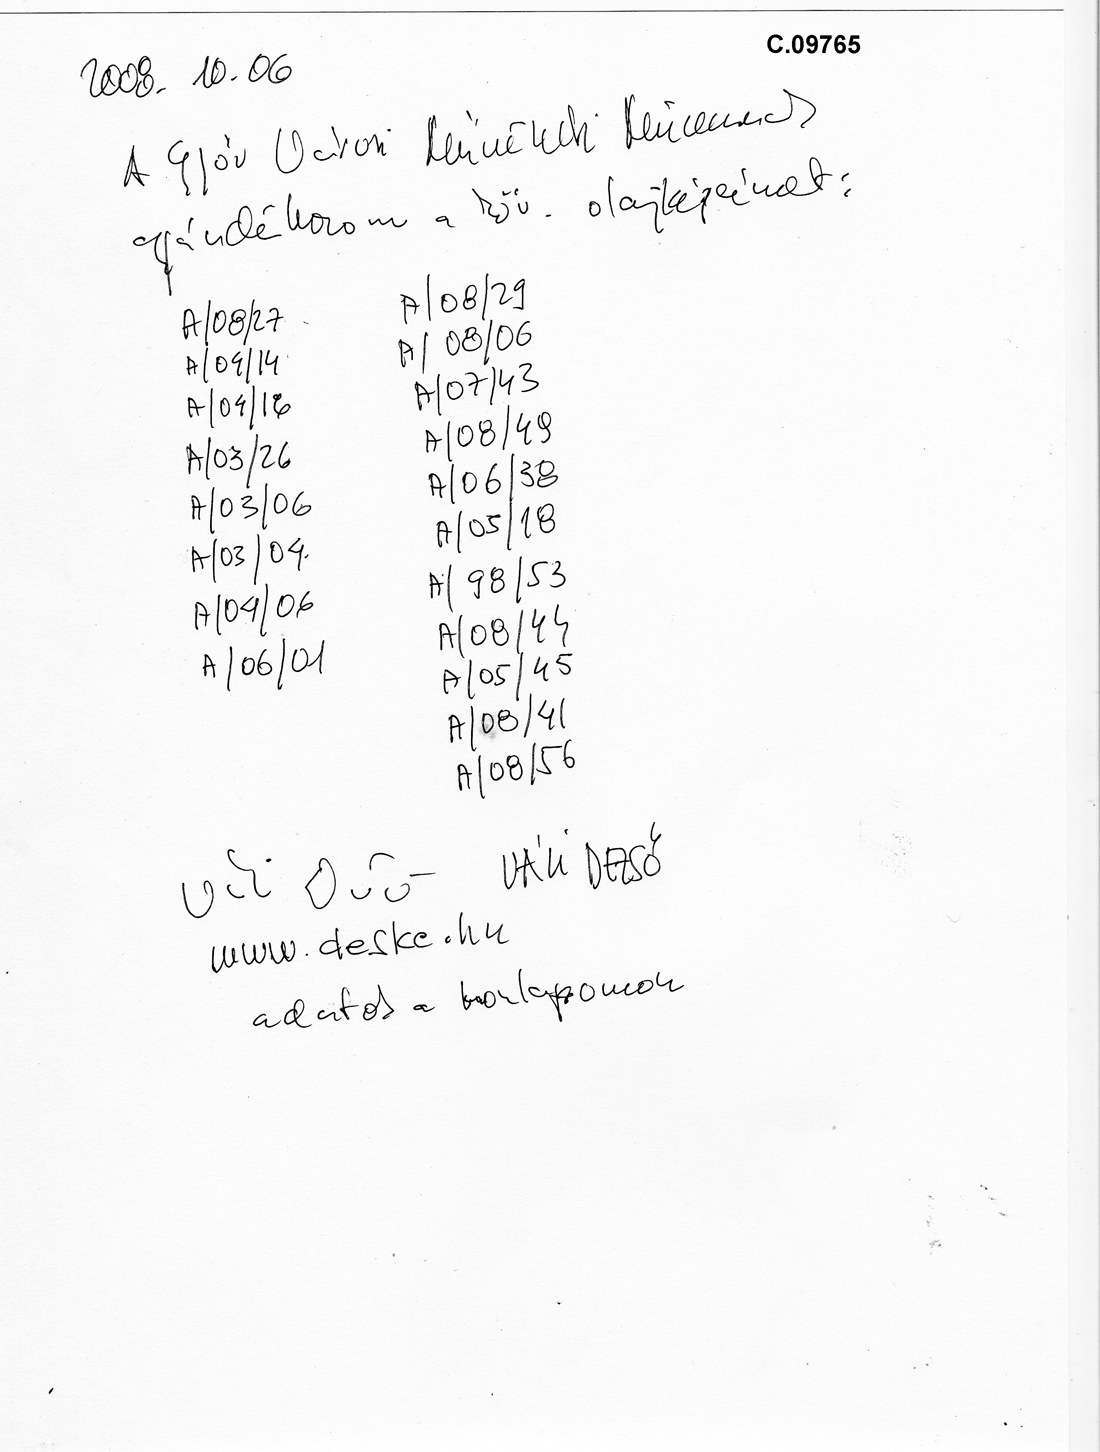 C.09765
2008. 10.06
A Győr Városi Múzeumnak
ajándékozom a köv. olajképeimet:
A/08/27
A/04/14
A/04/16
A/03/26
A/03/06
A/03/04.
A/04/06
A/06/01
A/08/29
A/08/06
A/07/43
A/08/49
A/06/38
A/05/18
A/98/53
A/08/44
A/05/45
A/08/41
A/08/56
Váli Dezső VÁLI DEZSŐ
www.deske.hu
adatok a honlapomon